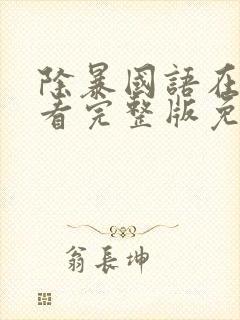 除暴國語在
看完整版免
翁長坤